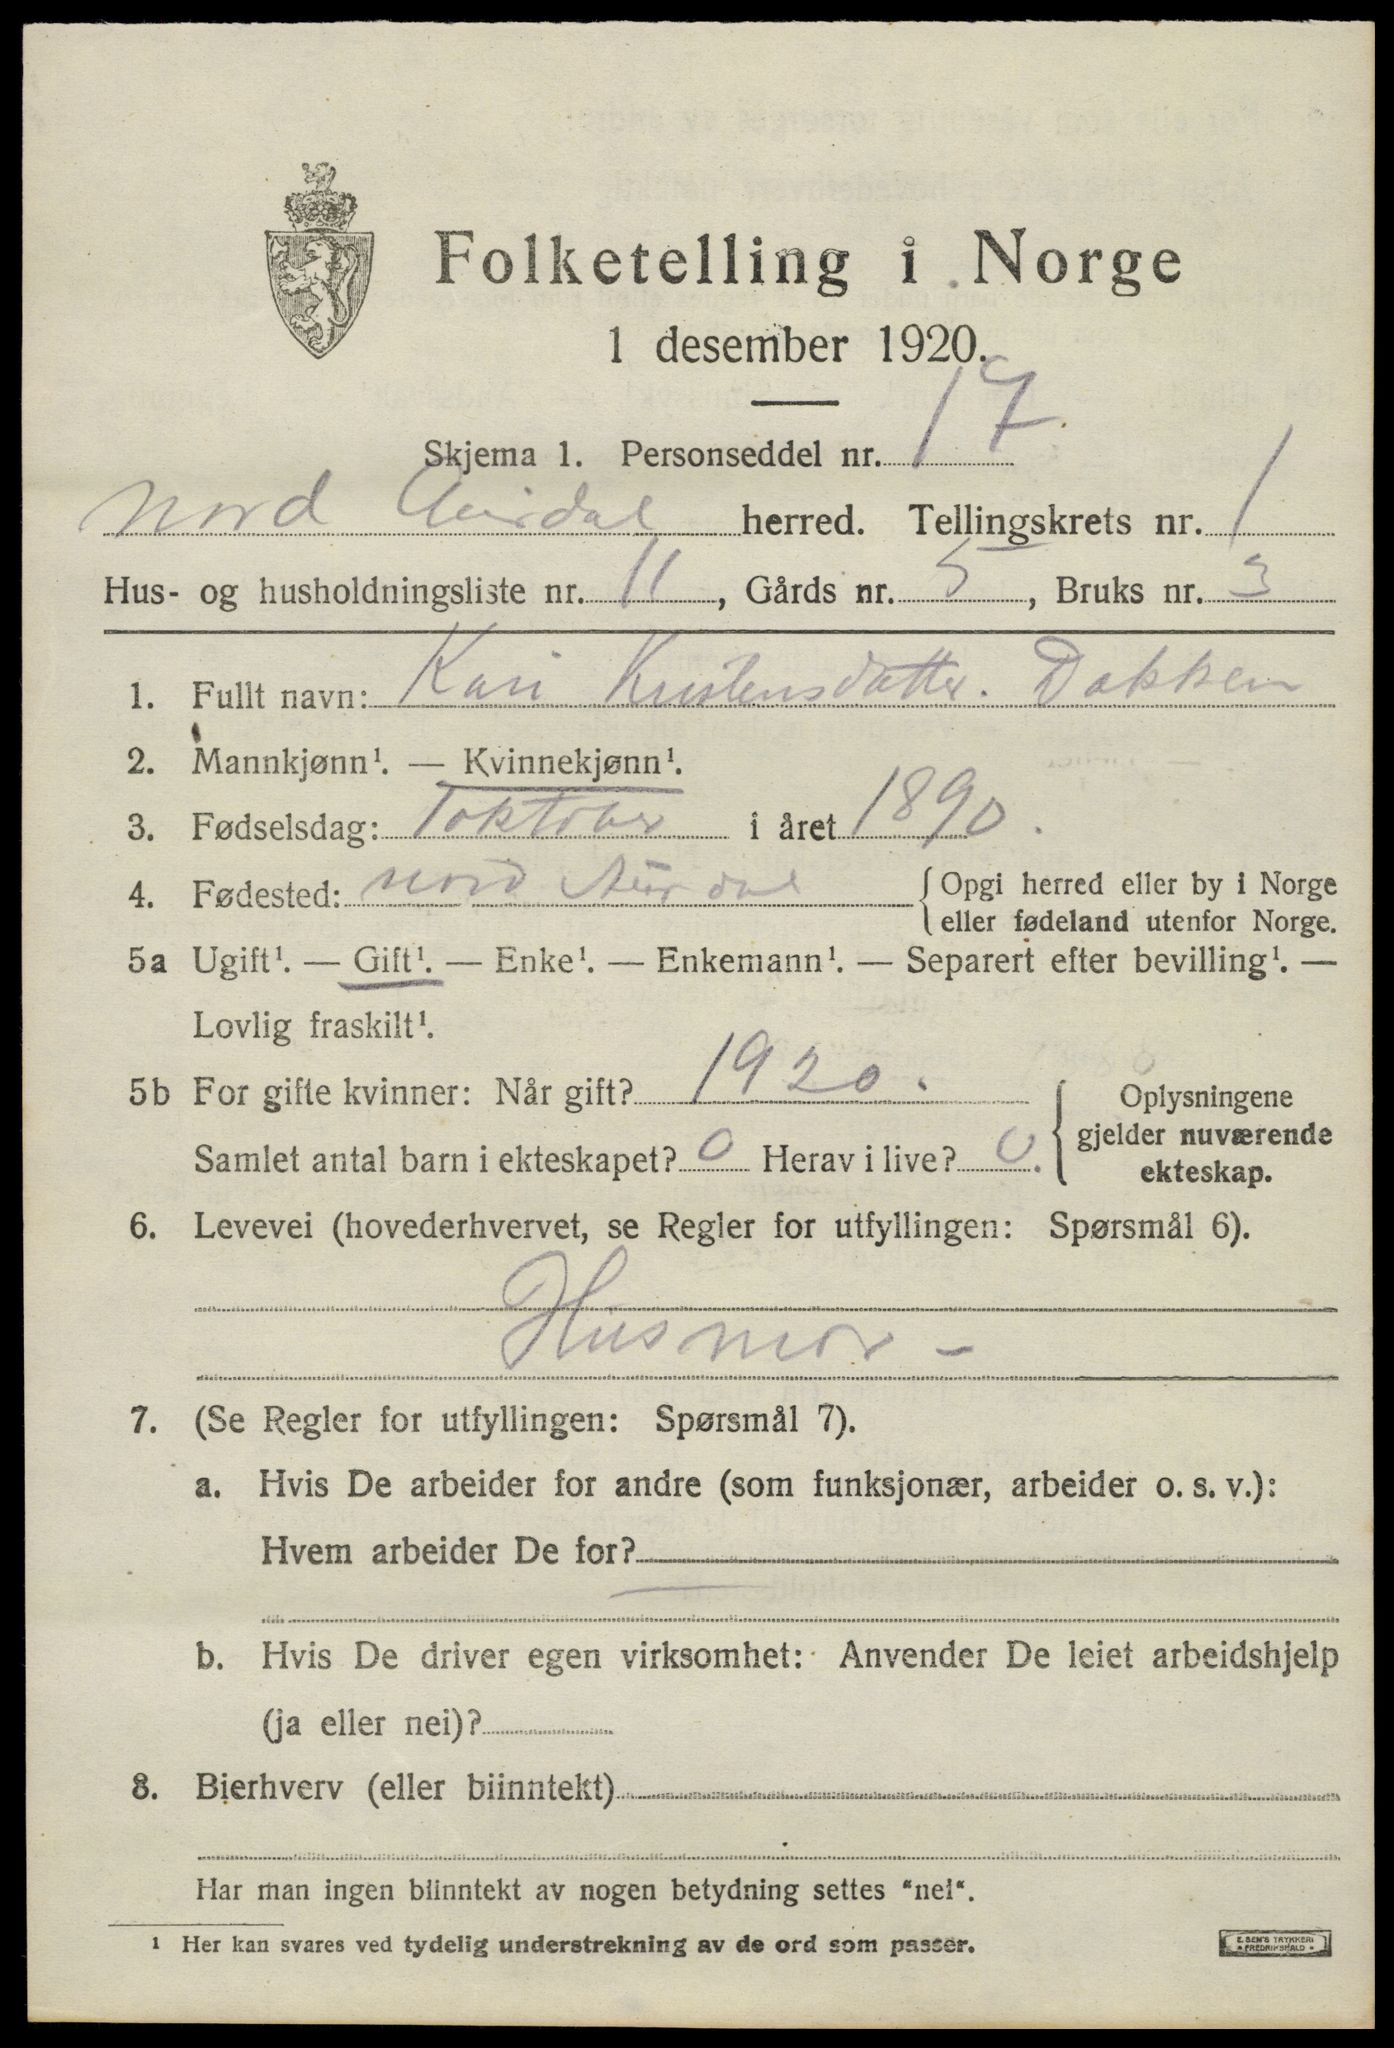 Folketelling i Norge
1 desember 1920.
Skjema 1. Personseddel nr. 17
Nord Aurdal herred. Tellingskrets nr. 1
Hus- og husholdningsliste nr. 11, Gårds nr. 5, Bruks nr. 3
1. Fullt navn: Kari Kristensdatter. Dokken
2. Mannkjønn¹. — Kvinnekjønn¹.
3. Fødselsdag: 1 oktober i året 1890.
4. Fødested: Nord Aurdal {Opgi herred eller by i Norge
eller fødeland utenfor Norge.
5a Ugift¹. — Gift¹. — Enke¹. — Enkemann¹. — Separert efter bevilling¹. —
Lovlig fraskilt¹.
5b For gifte kvinner: Når gift? 1920.
Samlet antal barn i ekteskapet? 0 Herav i live? 0.
{Oplysningene
gjelder nuværende
ekteskap.
6. Levevei (hovederhvervet, se Regler for utfyllingen: Spørsmål 6).
Husmor –
7. (Se Regler for utfyllingen: Spørsmål 7).
a. Hvis De arbeider for andre (som funksjonær, arbeider o. s. v.):
Hvem arbeider De for?
b. Hvis De driver egen virksomhet: Anvender De leiet arbeidshjelp
(ja eller nei)?
8. Bierhverv (eller biinntekt)
Har man ingen biinntekt av nogen betydning settes "nei".
¹ Her kan svares ved tydelig understrekning av de ord som passer.
E. SEM'S TRYKKERI
• FREDRIKSHALD •